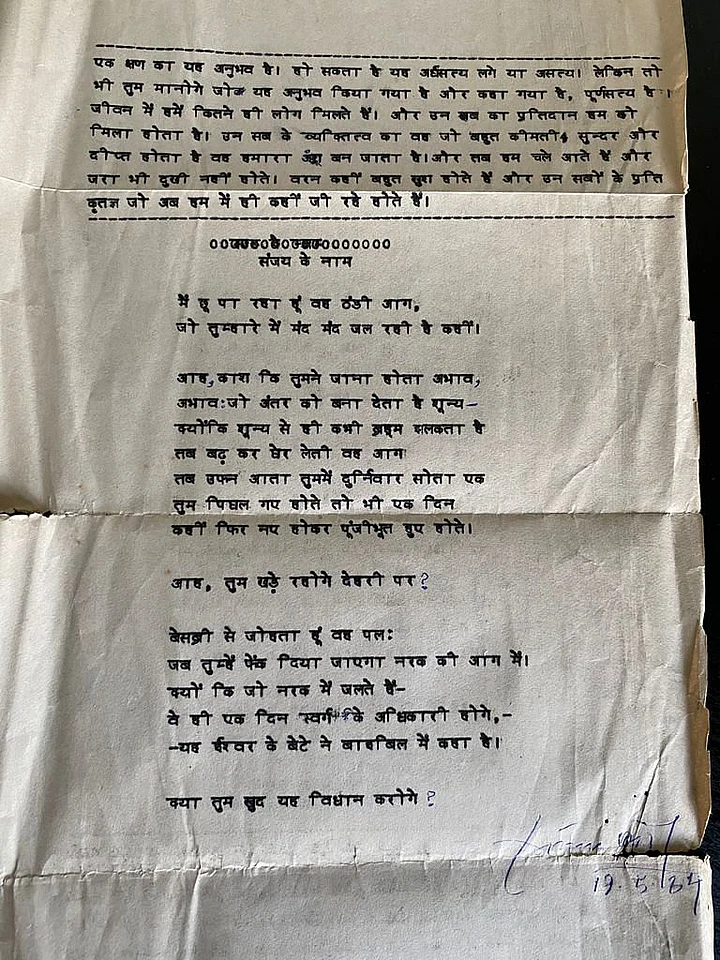 एक क्षण का यह अनुभव है। हो सकता है यह अर्धसत्य लगे या असत्य। लेकिन तो
भी तुम मानोगे जो यह अनुभव किया गया है और कहा गया है, पूर्णसत्य है।
जीवन में हमें कितने ही लोग मिलते हैं। और उन सब का प्रतिदान हम को
मिला होता है। उन सब के व्यक्तित्व का वह जो बहुत कीमती, सुन्दर और
दीप्त होता है वह हमारा अंश बन जाता है।और तब हम चले आते हैं और
जरा भी दुखी नहीं होते। वरन कहीं बहुत खुश होते हैं और उन सबों के प्रति
कृतज्ञ जो अब हम में ही कहीं जी रहे होते हैं।
संजय के नाम
मैं छू पा रहा हूं वह ठंडी आग,
जो तुम्हारे में मंद मंद जल रही है कहीं।
आह,काश कि तुमने जाना होता अभाव,
अभाव:जो अंतर को बना देता है शून्य-
क्योंकि शून्य से ही कभी ब्रह्म झलकता है
तब बढ़ कर घेर लेती वह आग
तब उफन आता तुममें दुर्निवार सोता एक
तुम पिघल गए होते तो भी एक दिन
कहीं फिर नए होकर पूंजीभूत हुए होते।
आह, तुम खड़े रहोगे देहरी पर?
बेसब्री से जोहता हूं वह पल:
जब तुम्हें फेंक दिया जाएगा नरक की आग में।
क्यों कि जो नरक में जलते हैं-
वे ही एक दिन स्वर्ग के अधिकारी होगे,-
-यह ईश्वर के बेटे ने बाइबिल में कहा है।
क्या तुम खुद यह विधान करोगे?
19.5.84